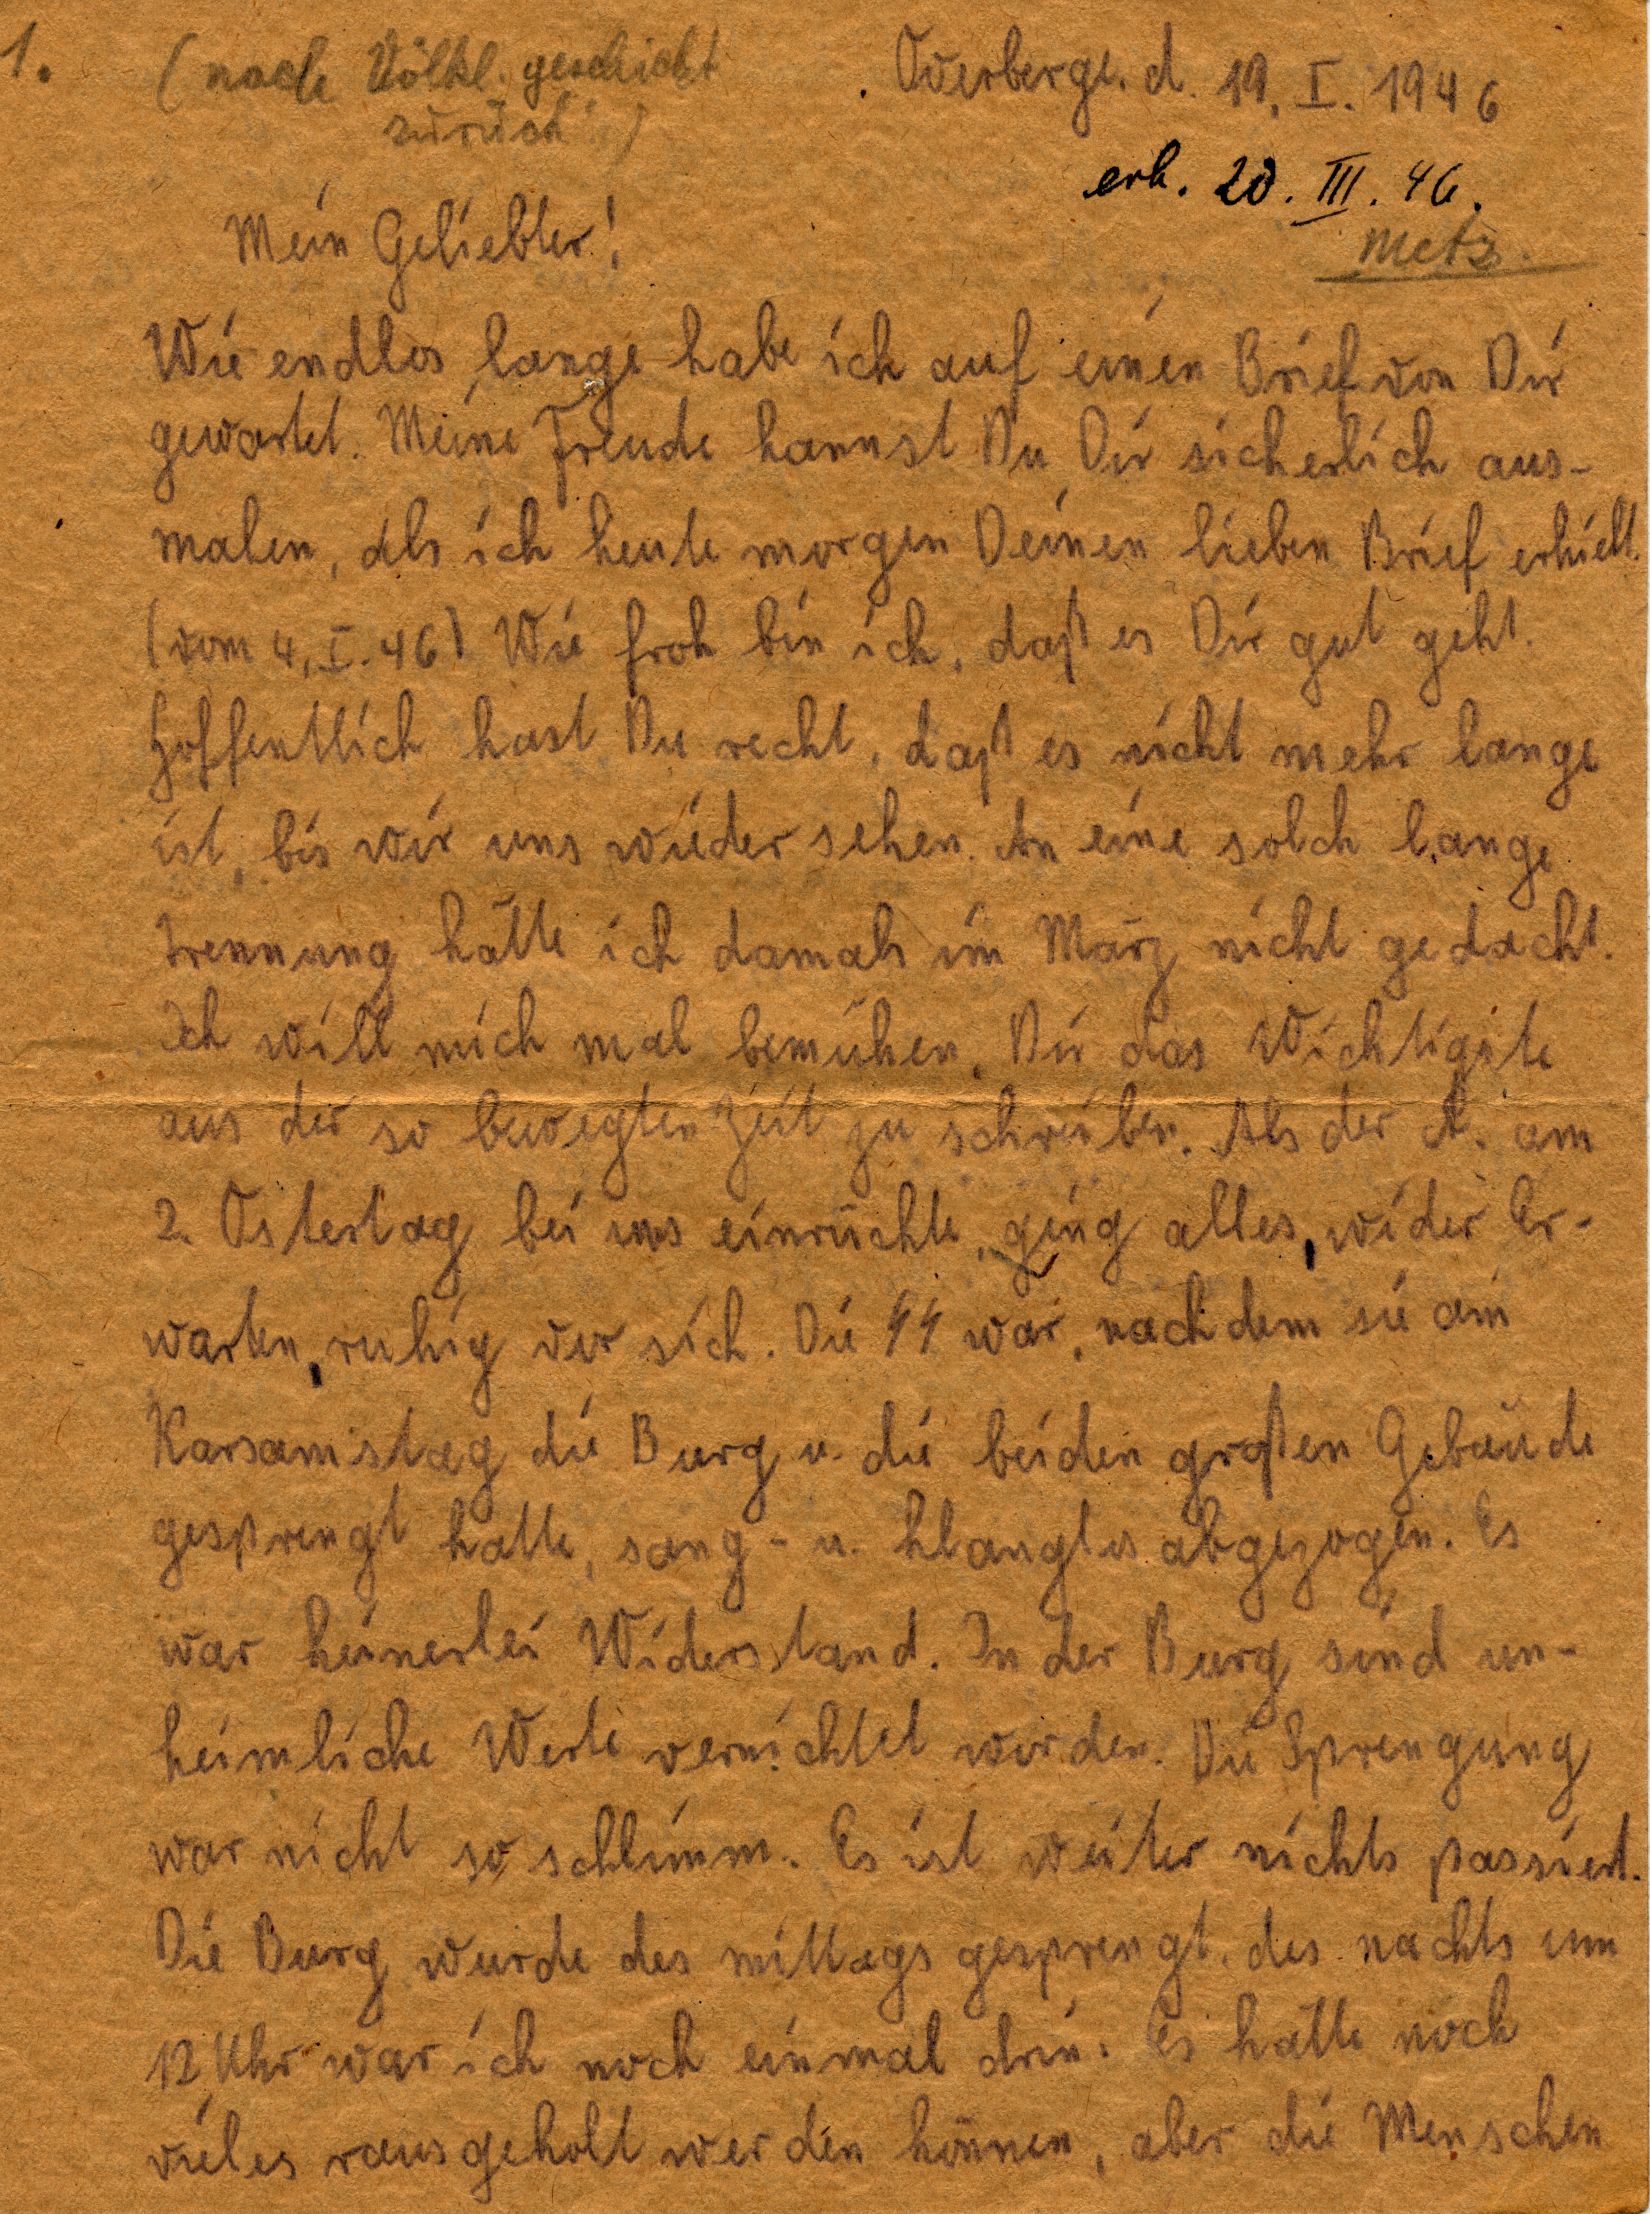 1.
(nach Völkl. geschickt
zurück!)
Overberge. d. 19. I. 1946
erh. 20. III. 46.
Metz.
Mein Geliebter!
Wie endlos lange habe ich auf einen Brief von Dir
gewartet. Meine Freude kannst Du Dir sicherlich aus-
malen, als ich heute morgen Deinen lieben Brief erhielt.
(vom 4. I. 46) Wie froh bin ich, daß es Dir gut geht.
Hoffentlich hast Du recht, daß es nicht mehr lange
ist, bis wir uns wieder sehen. An eine solch lange
Trennung hätte ich damals im März nicht gedacht.
Ich will mich mal bemühen, Dir das Wichtigste
aus der so bewegten Zeit zu schreiben. Als der A. am
2. Ostertag bei uns einrückte, ging alles, wider Er-
warten, ruhig vor sich. Die SS war, nachdem sie am
Karsamstag die Burg u. die beiden großen Gebäude
gesprengt hatte, sang- u. klanglos abgezogen. Es
war keinerlei Widerstand. In der Burg sind un-
heimliche Werte vernichtet worden. Die Sprengung
war nicht so schlimm. Es ist weiter nichts passiert.
Die Burg wurde des mittags gesprengt. des nachts um
12 Uhr war ich noch einmal drin. Es hätte noch
vieles rausgeholt werden können, aber die Menschen